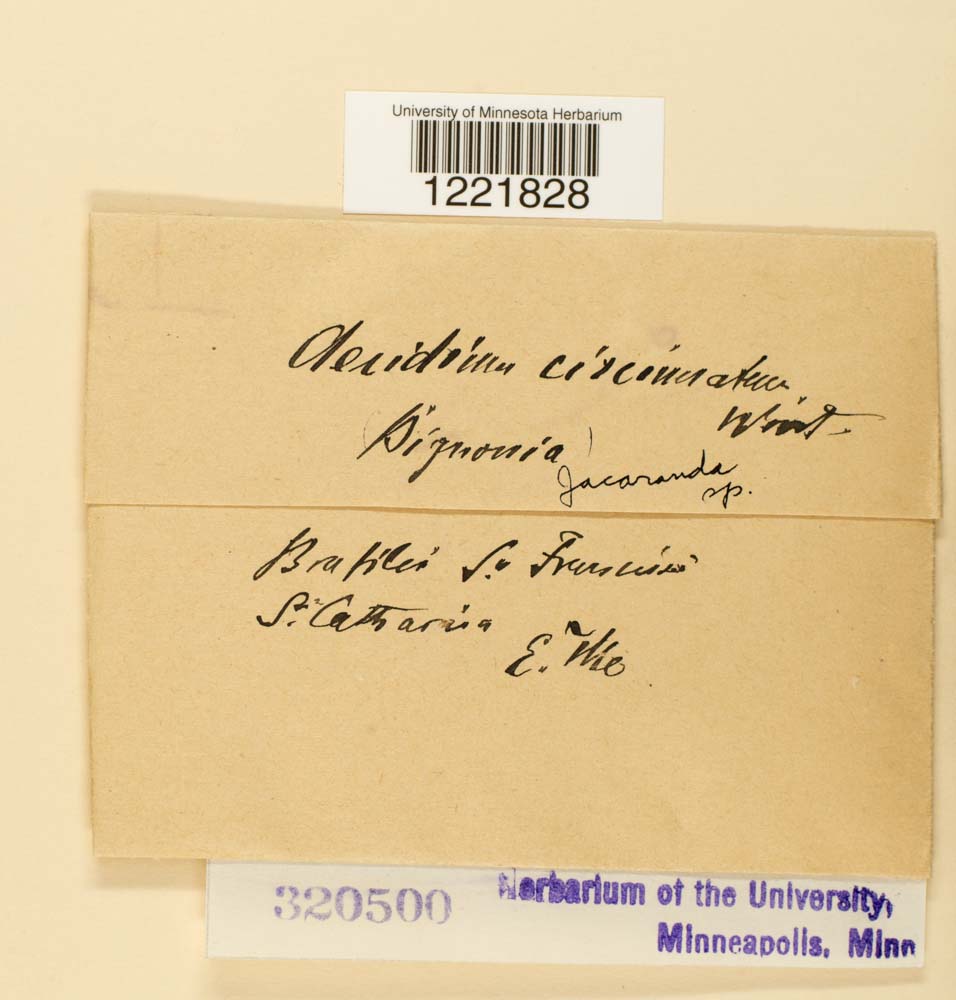 University of Minnesota Herbarium
1221828
Aecidium circinnatum
Wint.
(Bignonia)
Jacaranda
sp.
Brasilien S. Francisco
St. Catharina
E. Ule
320500
Herbarium of the University,
Minneapolis, Minn